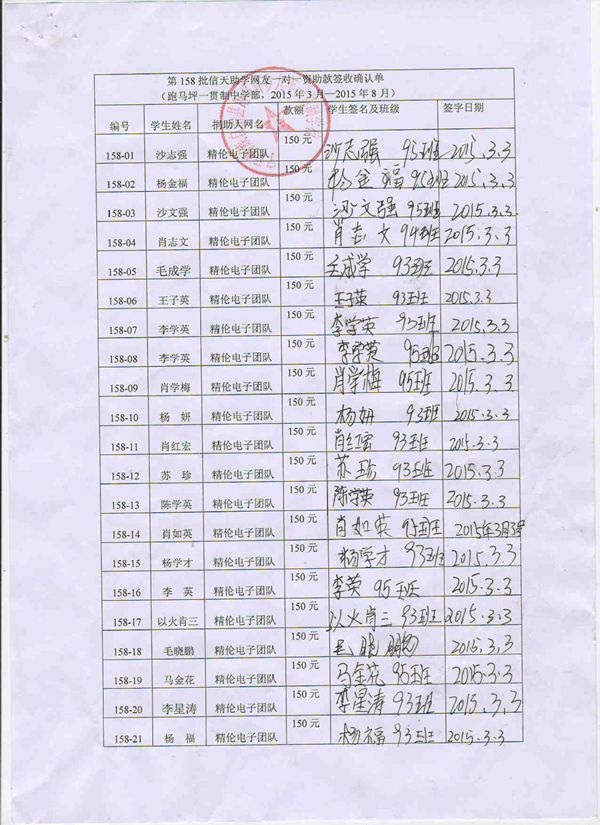 第 158 批信天助学网友一对一资助款签收确认单
（跑马坪一贯制中学部，2015 年 3 月—2015 年 8 月）
编号 学生姓名 捐助人网名 款额 学生签名及班级 签字日期
158-01 沙志强 精伦电子团队 150 元 沙志强 95班 2015.3.3
158-02 杨金福 精伦电子团队 150 元 杨金福 95班 2015.3.3
158-03 沙文强 精伦电子团队 150 元 沙文强 95班 2015.3.3
158-04 肖志文 精伦电子团队 150 元 肖志文 94班 2015.3.3
158-05 毛成学 精伦电子团队 150 元 毛成学 93班 2015.3.3
158-06 王子英 精伦电子团队 150 元 王子英 93班 2015.3.3
158-07 李学英 精伦电子团队 150 元 李学英 93班 2015.3.3
158-08 李学英 精伦电子团队 150 元 李学英 95班 2015.3.3
158-09 肖学梅 精伦电子团队 150 元 肖学梅 95班 2015.3.3
158-10 杨 妍 精伦电子团队 150 元 杨妍 93班 2015.3.3
158-11 肖红宏 精伦电子团队 150 元 93班 2015.3.3
158-12 苏 珍 精伦电子团队 150 元 苏珍 93班 2015.3.3
158-13 陈学英 精伦电子团队 150 元 陈学英 93班 2015.3.3
158-14 肖如英 精伦电子团队 150 元 肖如英 95班 2015年3月3号
158-15 杨学才 精伦电子团队 150 元 杨学才 93班 2015.3.3
158-16 李 英 精伦电子团队 150 元 李英 95班 2015.3.3
158-17 以火肖三 精伦电子团队 150 元 以火肖三 93班 2015.3.3
158-18 毛晓鹏 精伦电子团队 150 元 毛晓鹏 2015.3.3
158-19 马金花 精伦电子团队 150 元 马金花 95班 2015.3.3
158-20 李星涛 精伦电子团队 150 元 李星涛 93班 2015.3.3
158-21 杨 福 精伦电子团队 150 元 杨福 93班 2015.3.3